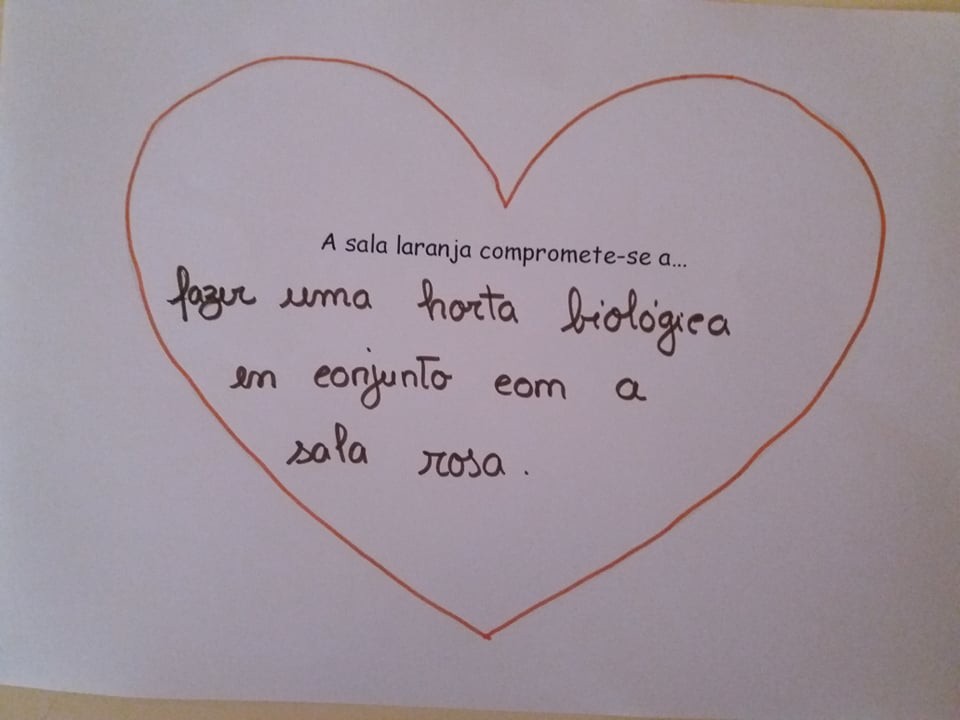 A sala laranja compromete-se a...
fazer uma horta biológica
em conjunto com a
sala rosa.